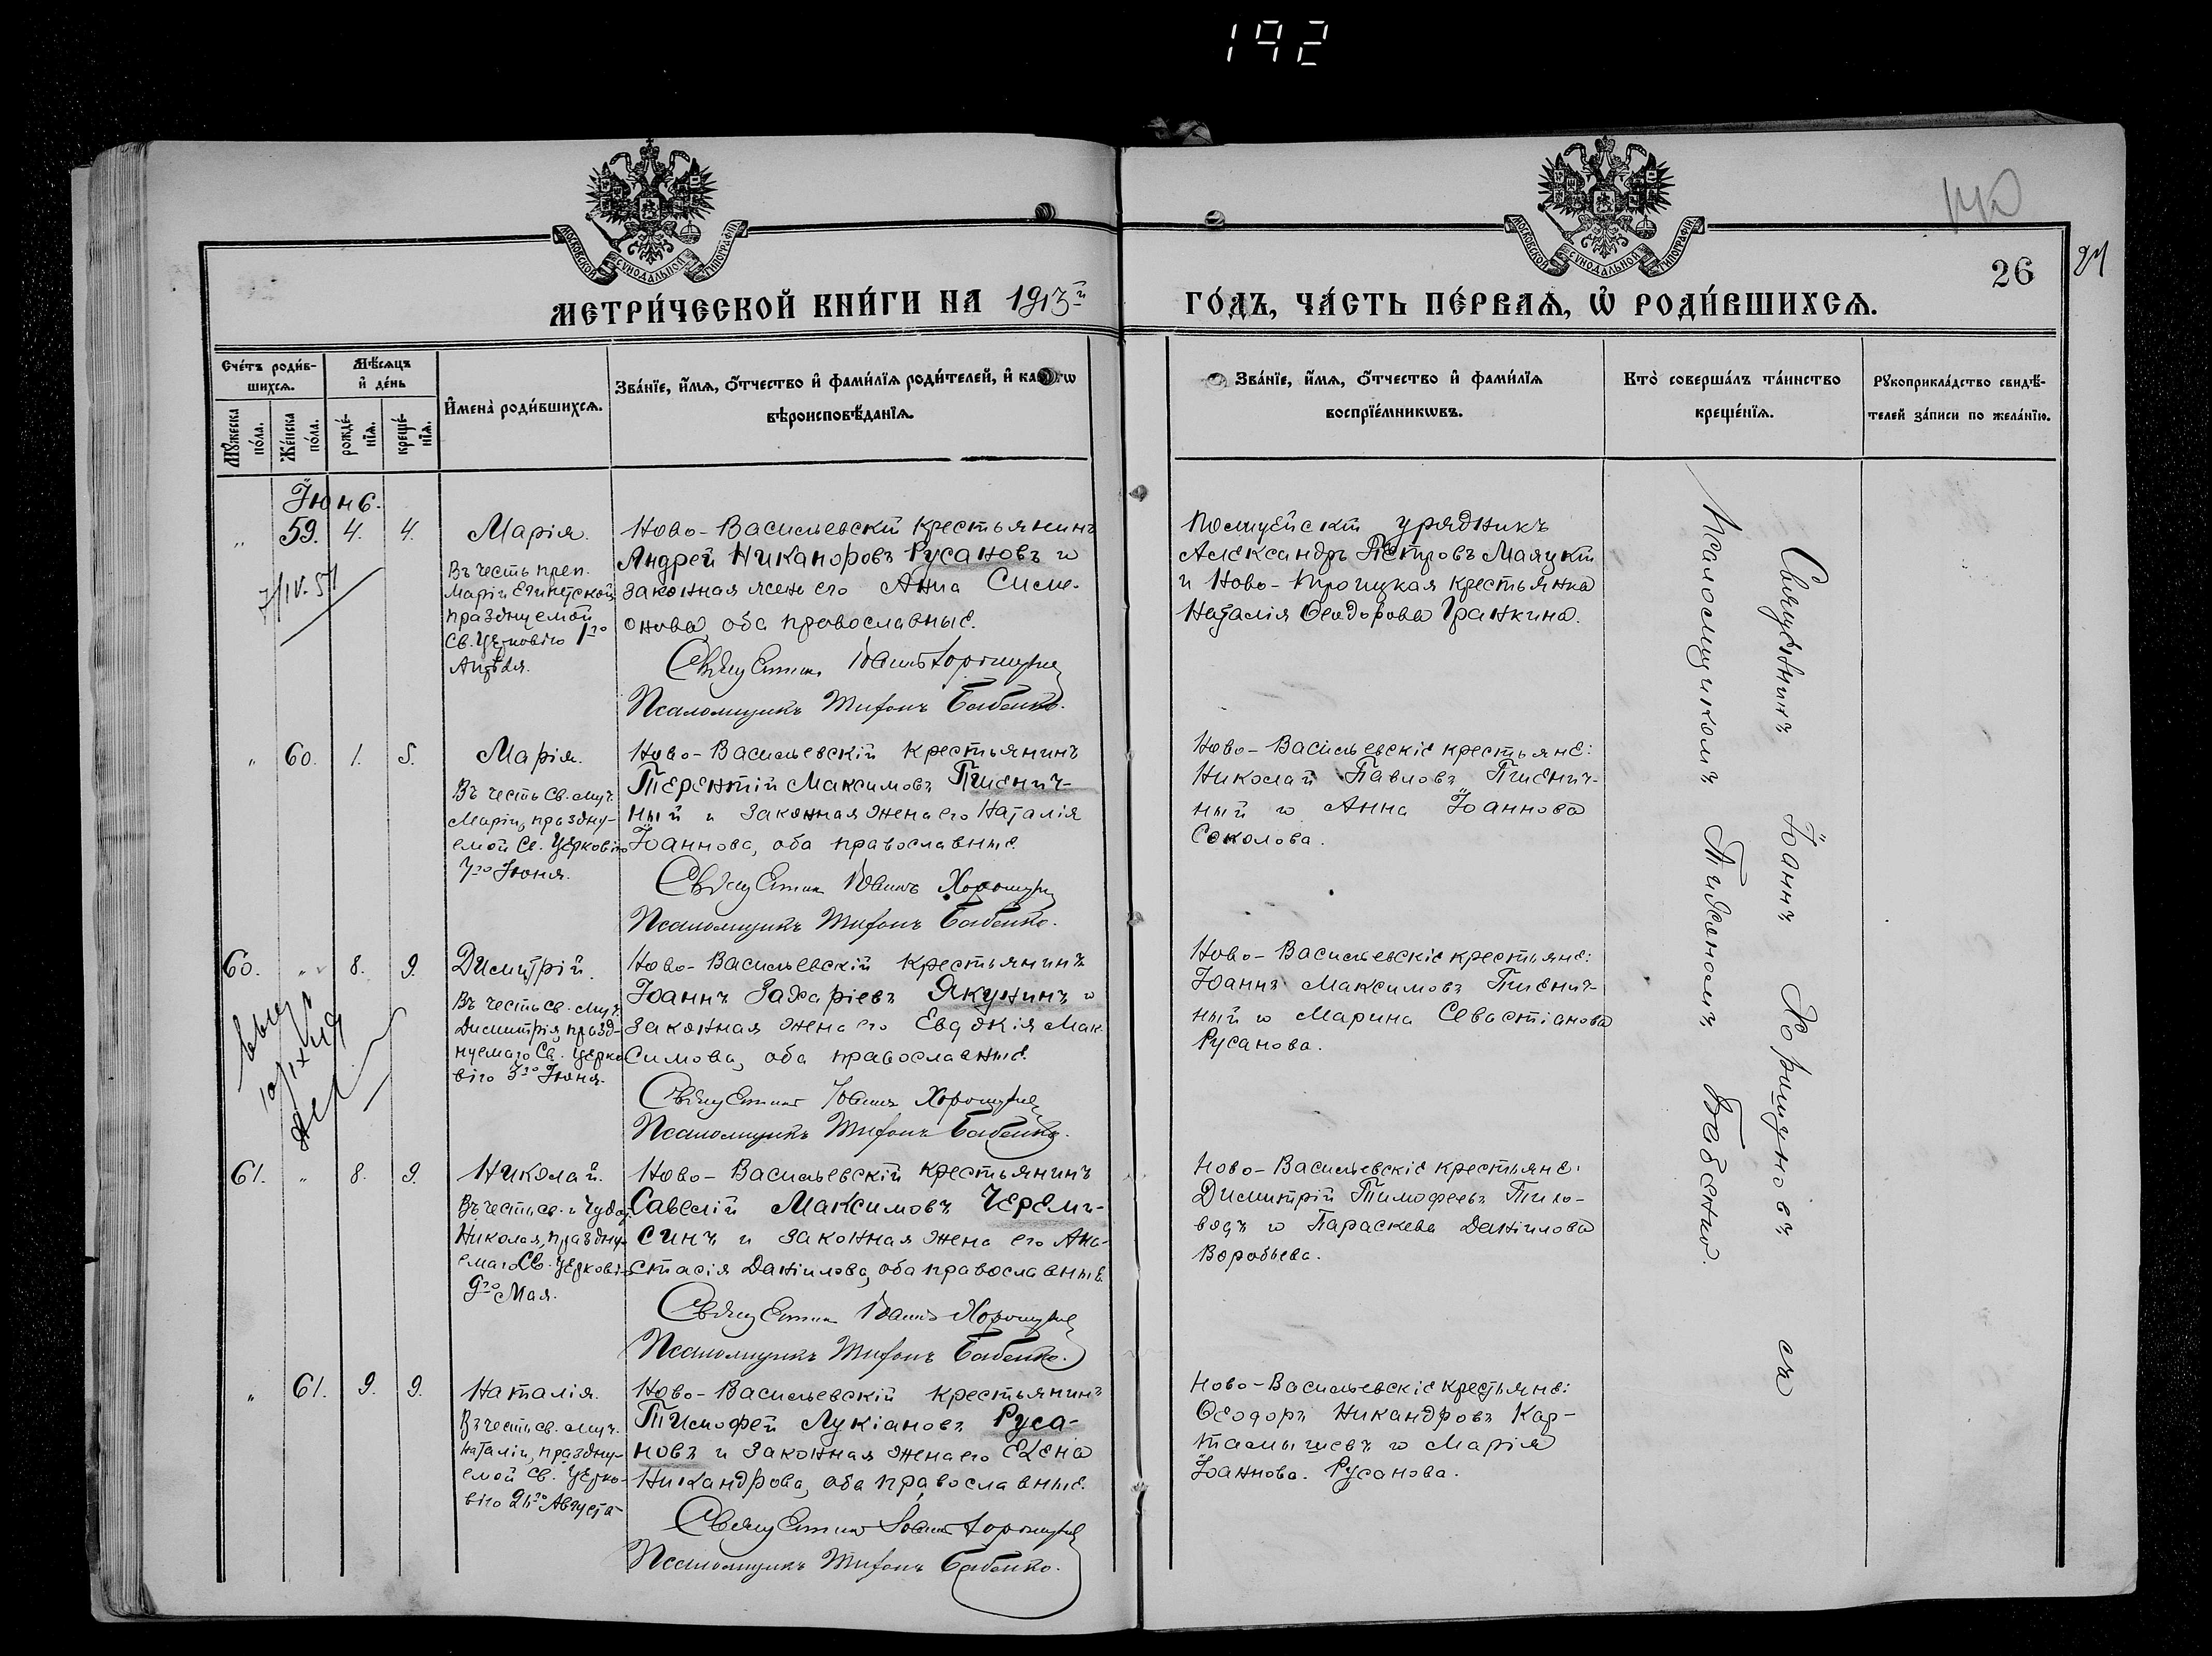 192
МОСКОВСКОЙ СѴНОДАЛЬНОЙ ТИПОГРАФІИ
МОСКОВСКОЙ СѴНОДАЛЬНОЙ ТИПОГРАФІИ
140
26
МЕТРИ́ЧЕСКОЙ КНИ́ГИ НА 1913й
ГО́ДЪ, ЧА́СТЬ ПЕ́РВАѦ, Ѡ҆ РОДИ́ВШИХСѦ.
Сче́тъ роди́в-
шихсѧ.
Мꙋ́жеска
по́ла.
Же́нска
по́ла.
Мѣ́сѧцъ
и҆ де́нь
рожде́-
нїѧ.
креще́-
нїѧ.
И҆мена̀ роди́вшихсѧ.
Зва́нїе, и҆́мѧ, ѻ҆́тчество и҆ фами́лїѧ роди́телей, и҆
вѣроисповѣ́данїѧ.
Зва́нїе, и҆́мѧ, ѻ҆́тчество и҆ фами́лїѧ
воспрїе́мникѡвъ.
Кто̀ соверша́лъ та́инство
креще́нїѧ.
Рꙋкоприкла́дство свидѣ́-
телей за́писи по жела́нїю.
Іюнь.
„ 59. 4. 4. Марія.
Въ честь преп.
Маріи Египетской
празднуемой
Св. Церковію 1го
Апрѣля.
7/IV.51
Ново-Васильевскій крестьянинъ
Андрей Никаноровъ Русановъ и
законная жена его Анна Симе-
онова, оба православные.
Священникъ Іоаннъ Хорошуновъ
Псаломщикъ Тихонъ Бабенко.
Полицейскій урядникъ
Александръ Петровъ Маяцкій
и Ново-Троицкая крестьянка
Наталія Ѳеодорова Гранкина.
„ 60. 1. 5. Марія.
Въ честь Св. муч.
Маріи, праздну-
емой Св. Церковію
7го Іюня.
Ново-Васильевскій крестьянинъ
Терентій Максимовъ Пшенич-
ный и законная жена его Наталія
Іоаннова, оба православные.
Священникъ Іоаннъ Хорошуновъ
Псаломщикъ Тихонъ Бабенко.
Ново-Васильевскіе крестьяне:
Николай Павловъ Пшенич-
ный и Анна Іоаннова
Соколова.
60. „ 8. 9. Димитрій.
Въ честь св. муч.
Димитрія, празд-
нуемаго Св. Церко-
вію 3го Іюня.
Ново-Васильевскій крестьянинъ
Іоаннъ Захаріевъ Якунинъ и
законная жена его Евдокія Мак-
симова, оба православные.
Священникъ Іоаннъ Хорошуновъ
Псаломщикъ Тихонъ Бабенко.
Ново-Васильевскіе крестьяне:
Іоаннъ Максимовъ Пшенич-
ный и Марина Севастіанова
Русанова.
61. „ 8. 9. Николай.
Въ честь св. и Чудот.
Николая, праздну-
емаго Св. Церковію
9го Мая.
Ново-Васильевскій крестьянинъ
Савелій Максимовъ Череми-
синъ и законная жена его Ана-
стасія Даніилова, оба православные.
Священникъ Іоаннъ Хорошуновъ
Псаломщикъ Тихонъ Бабенко.
Ново-Васильевскіе крестьяне:
Димитрій Тимоѳеевъ
и Параскева Даніилова
Воробьева.
„ 61. 9. 9. Наталія.
Въ честь св. муч.
Наталіи, праздну-
емой Св. Церко-
вію 26го Августа
Ново-Васильевскій крестьянинъ
Тимофей Лукіановъ Руса-
новъ и законная жена его Елена
Никандрова, оба православные.
Священникъ Іоаннъ Хорошуновъ
Псаломщикъ Тихонъ Бабенко.
Ново-Васильевскіе крестьяне:
Ѳеодоръ Никандровъ Кар-
тамышевъ и Марія
Іоаннова Русанова.
Священникъ Іоаннъ Хорошуновъ съ
Псаломщикомъ Тихономъ Бабенко.